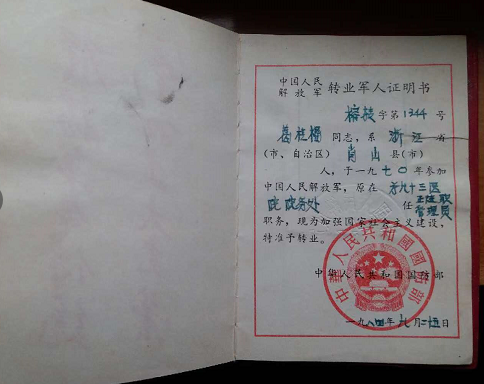 中国人民
解放军 转业军人证明书
字第1344号
葛桂福 同志，系 浙江 省
（市、自治区） 肖山 县（市）
人，于一九七〇年参加
中国人民解放军，原在 第九十三医
院 政务处 任 正连职
管理员
职务，现为加强国家社会主义建设，
特准予转业。
中华人民共和国国防部
中華人民共和國國防部
一九八四年 月二十五日